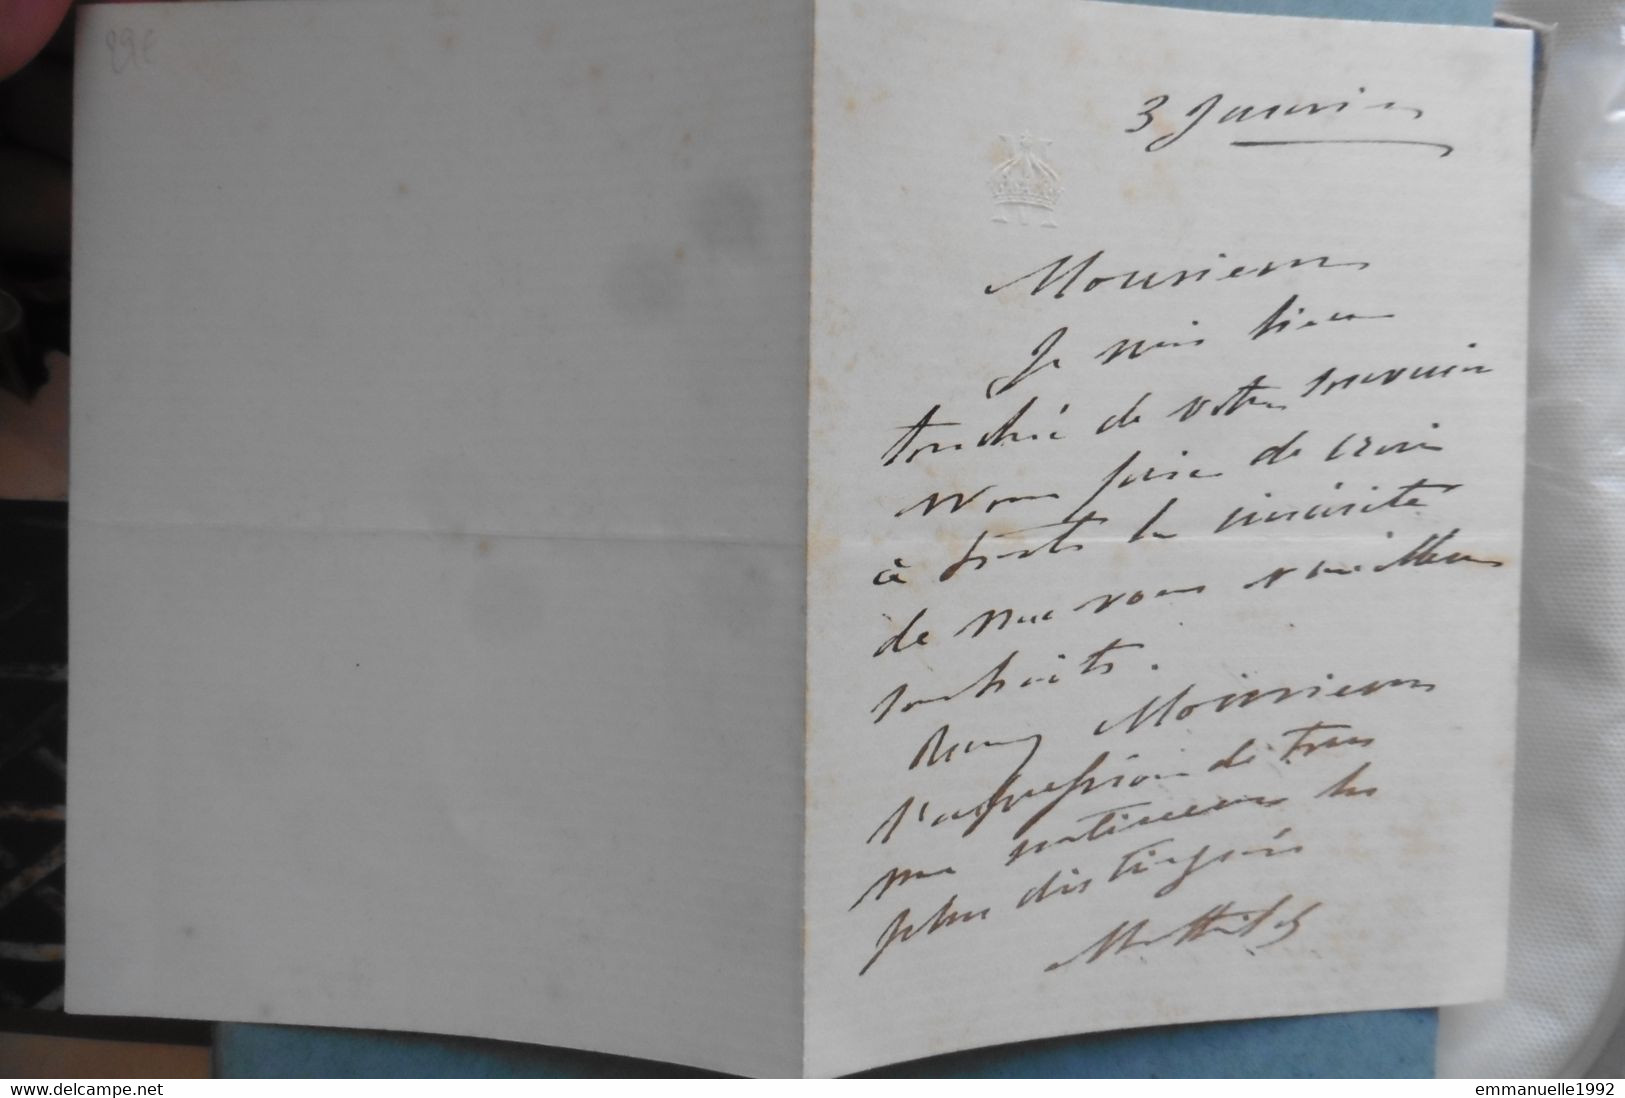 29€
3 Janvier
Monsieur
Je suis bien
touchée de votre souvenir
Vous prie de croire
à toute la sincérité
de mes voeux
souhaits.
Recevez Monsieur
l'expression de tous
mes sentimens les
plus distingués
Mathilde
www.delcampe.net
emmanuelle1992